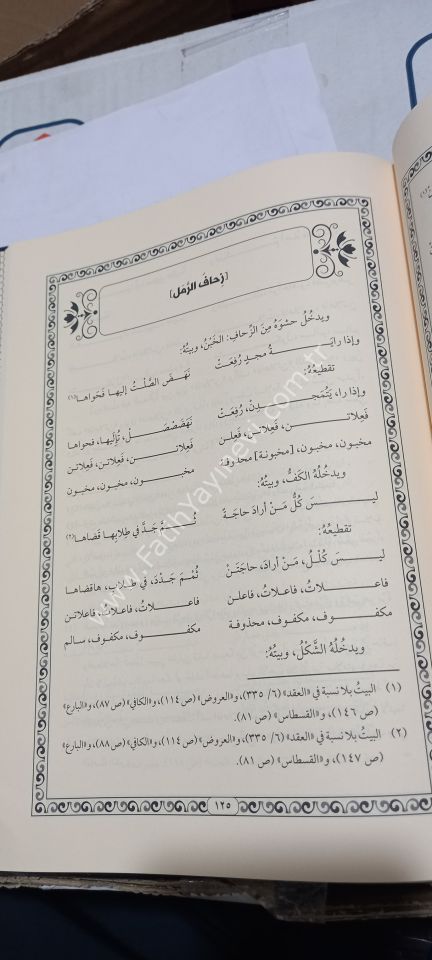 [زحافُ الرَّمَل]
ويدخُلُ حشوَهُ مِنَ الزِّحافِ: الخَبْنُ، وبيتُهُ:
وإذا رايَـــــــةُ مجدٍ رُفِعَتْ نَهَضَ الصَّلْتُ إليهـا فَحَواهـا(١)
تقطيعُهُ:
وإذا را، يَتُمَجـــــــدِنْ، رُفِعَتْ نَهَضَصْصَلْـــــ، تُإلَيها، فحواها
فَعِلاتـــــــن، فَعِلاتن، فَعِلن فَعِلاتـــــــن، فَعِلاتن، فَعِلاتن
مخبـون، مخبون، [مخبونة] محذوفة مخبــــون، مخبون، مخبون
ويدخُلُهُ الكَفُّ، وبيتُهُ:
ليـــــــسَ كُلُّ مَـنْ أرادَ حاجَةً ثُـــــــمَّ جَدَّ في طِلابِهـا قَضاها(٢)
تقطيعُهُ:
ليـــــــسَ كُلْلُ، مَـنْ أرادَ، حاجَتَنْ ثُمْمَ جَدْدَ، في طلاب، هاقضاها
فاعـــــلاتُ، فاعلاتُ، فاعلن فاعـــــلاتُ، فاعلاتُ، فاعلاتن
مكفـــــوف، مكفوف، محذوفة مكفـــــوف، مكفوف، سالم
ويدخُلُهُ الشَّكْلُ، وبيتُهُ:
(١) البيتُ بلا نسبة في «العقد» (٦/ ٣٣٥)، و«العروض» (ص ١١٤)، و«الكافي» (ص ٨٧)، و«البارع»
(ص ١٤٦)، و«القسطاس» (ص ٨١).
(٢) البيتُ بلا نسبة في «العقد» (٦/ ٣٣٥)، و«العروض» (ص ١١٤)، و«الكافي» (ص ٨٨)، و«البارع»
(ص ١٤٧)، و«القسطاس» (ص ٨١).
١٢٥
www.FatihYayinevi.com.tr